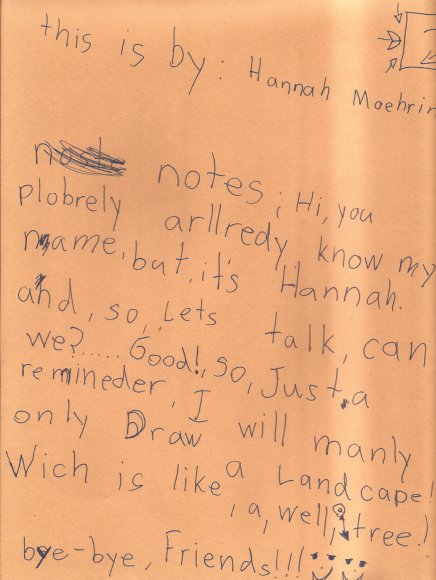 this is by: Hannah Moehrin
notes; Hi, you
plobrely arllredy know my
name, but, it's Hannah.
and, so, Lets talk, can
we?..... Good!, so, Just, a
remineder, I will manly
only Draw
Wich is like a Landcape!
, a, well, a tree!)
bye-bye, Friends!!!